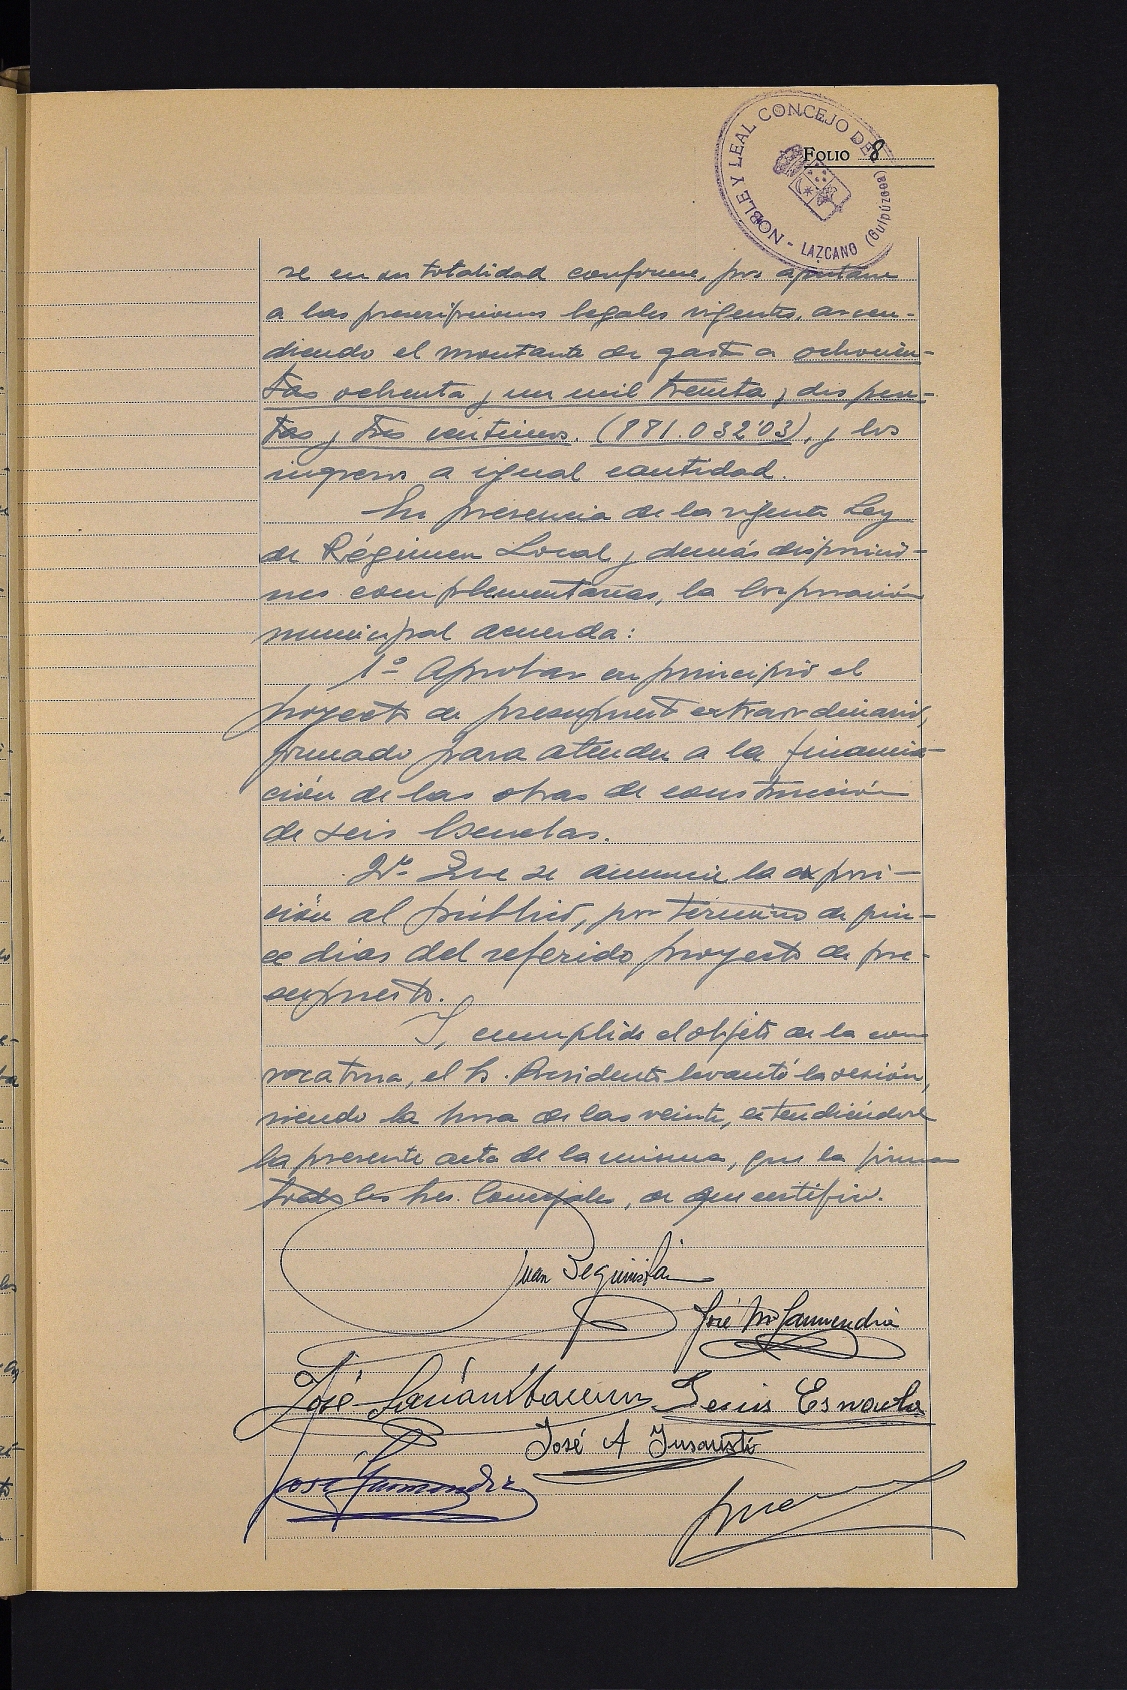 NOBLE Y LEAL CONCEJO DE - LAZCANO (Guipúzcoa)
FOLIO 8
se en su totalidad conforme, por ajustarse
a las prescripciones legales vigentes, ascen-
diendo el montante de gasto a ochocien-
tas ochenta y un mil treinta y dos pese-
tas y tres céntimos. (881.032'03), y los
ingresos a igual cantidad.
En presencia de la vigente Ley
de Régimen Local y demás disposicio-
nes complementarias, la Corporación
municipal acuerda:
1º Aprobar en principio el
proyecto de presupuesto extraordinario,
formado para atender a la financia-
ción de las obras de construcción
de seis Escuelas.
2º Que se anuncie la exposi-
ción al público, por término de quin-
ce días del referido proyecto de pre-
supuesto.
Y, cumplido el objeto de la con-
vocatoria, el Sr. Presidente levantó la sesión,
siendo la hora de las veinte, extendiéndose
la presente acta de la misma, que la firman
todos los Sres. Concejales, de que certifico.
Juan
José Mª
José
Jesús Esnaola
José A Insausti
José